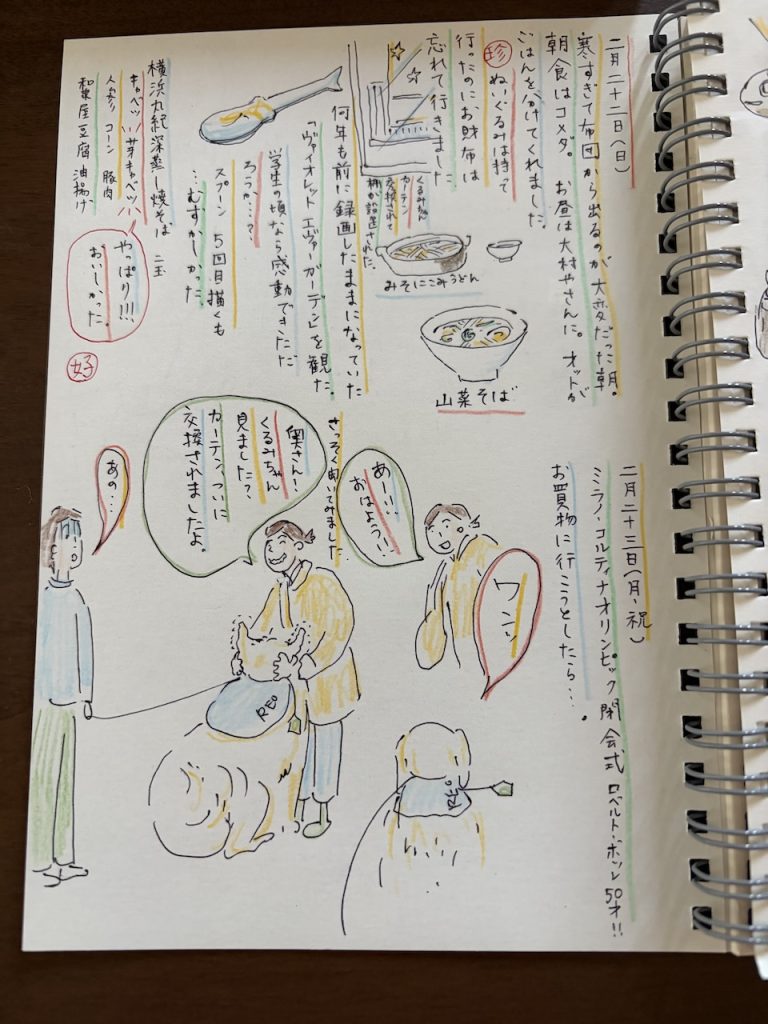 二月二十二日(日)
寒すぎて布団から出るのが大変だった朝。
朝食はコメダ。お昼は大村やさんに。オットが
ごはんを分けてくれました。
珍 ぬいぐるみは持って
行ったのにお財布は
忘れて行きました
くるみちゃん
カーテン
交換されて
棚が設置された。
みそにこみうどん
山菜そば
何年も前に録画したままになっていた
「ヴァイオレット エヴァーガーデン」を観た。
学生の頃なら感動できただ
ろうか…?
スプーン 5回目描くも
…むずかしかった
横浜丸紀深蒸し焼そば 二玉
キャベツ 芽キャベツ
人参 コーン 豚肉
和菓屋豆腐 油揚げ
やっぱり!!!
おいしかった。
好
二月二十三日(月・祝)
ミラノ・コルティナオリンピック閉会式 ロベルト・ボッレ 50才!!
お買物に行こうとしたら…。
ワンッ
あーい
おはよう!!
さっそく聞いてみました
奥さん!
くるみちゃん
見ました?
カーテン、ついに
交換されましたよ。
あの…
REO
REO